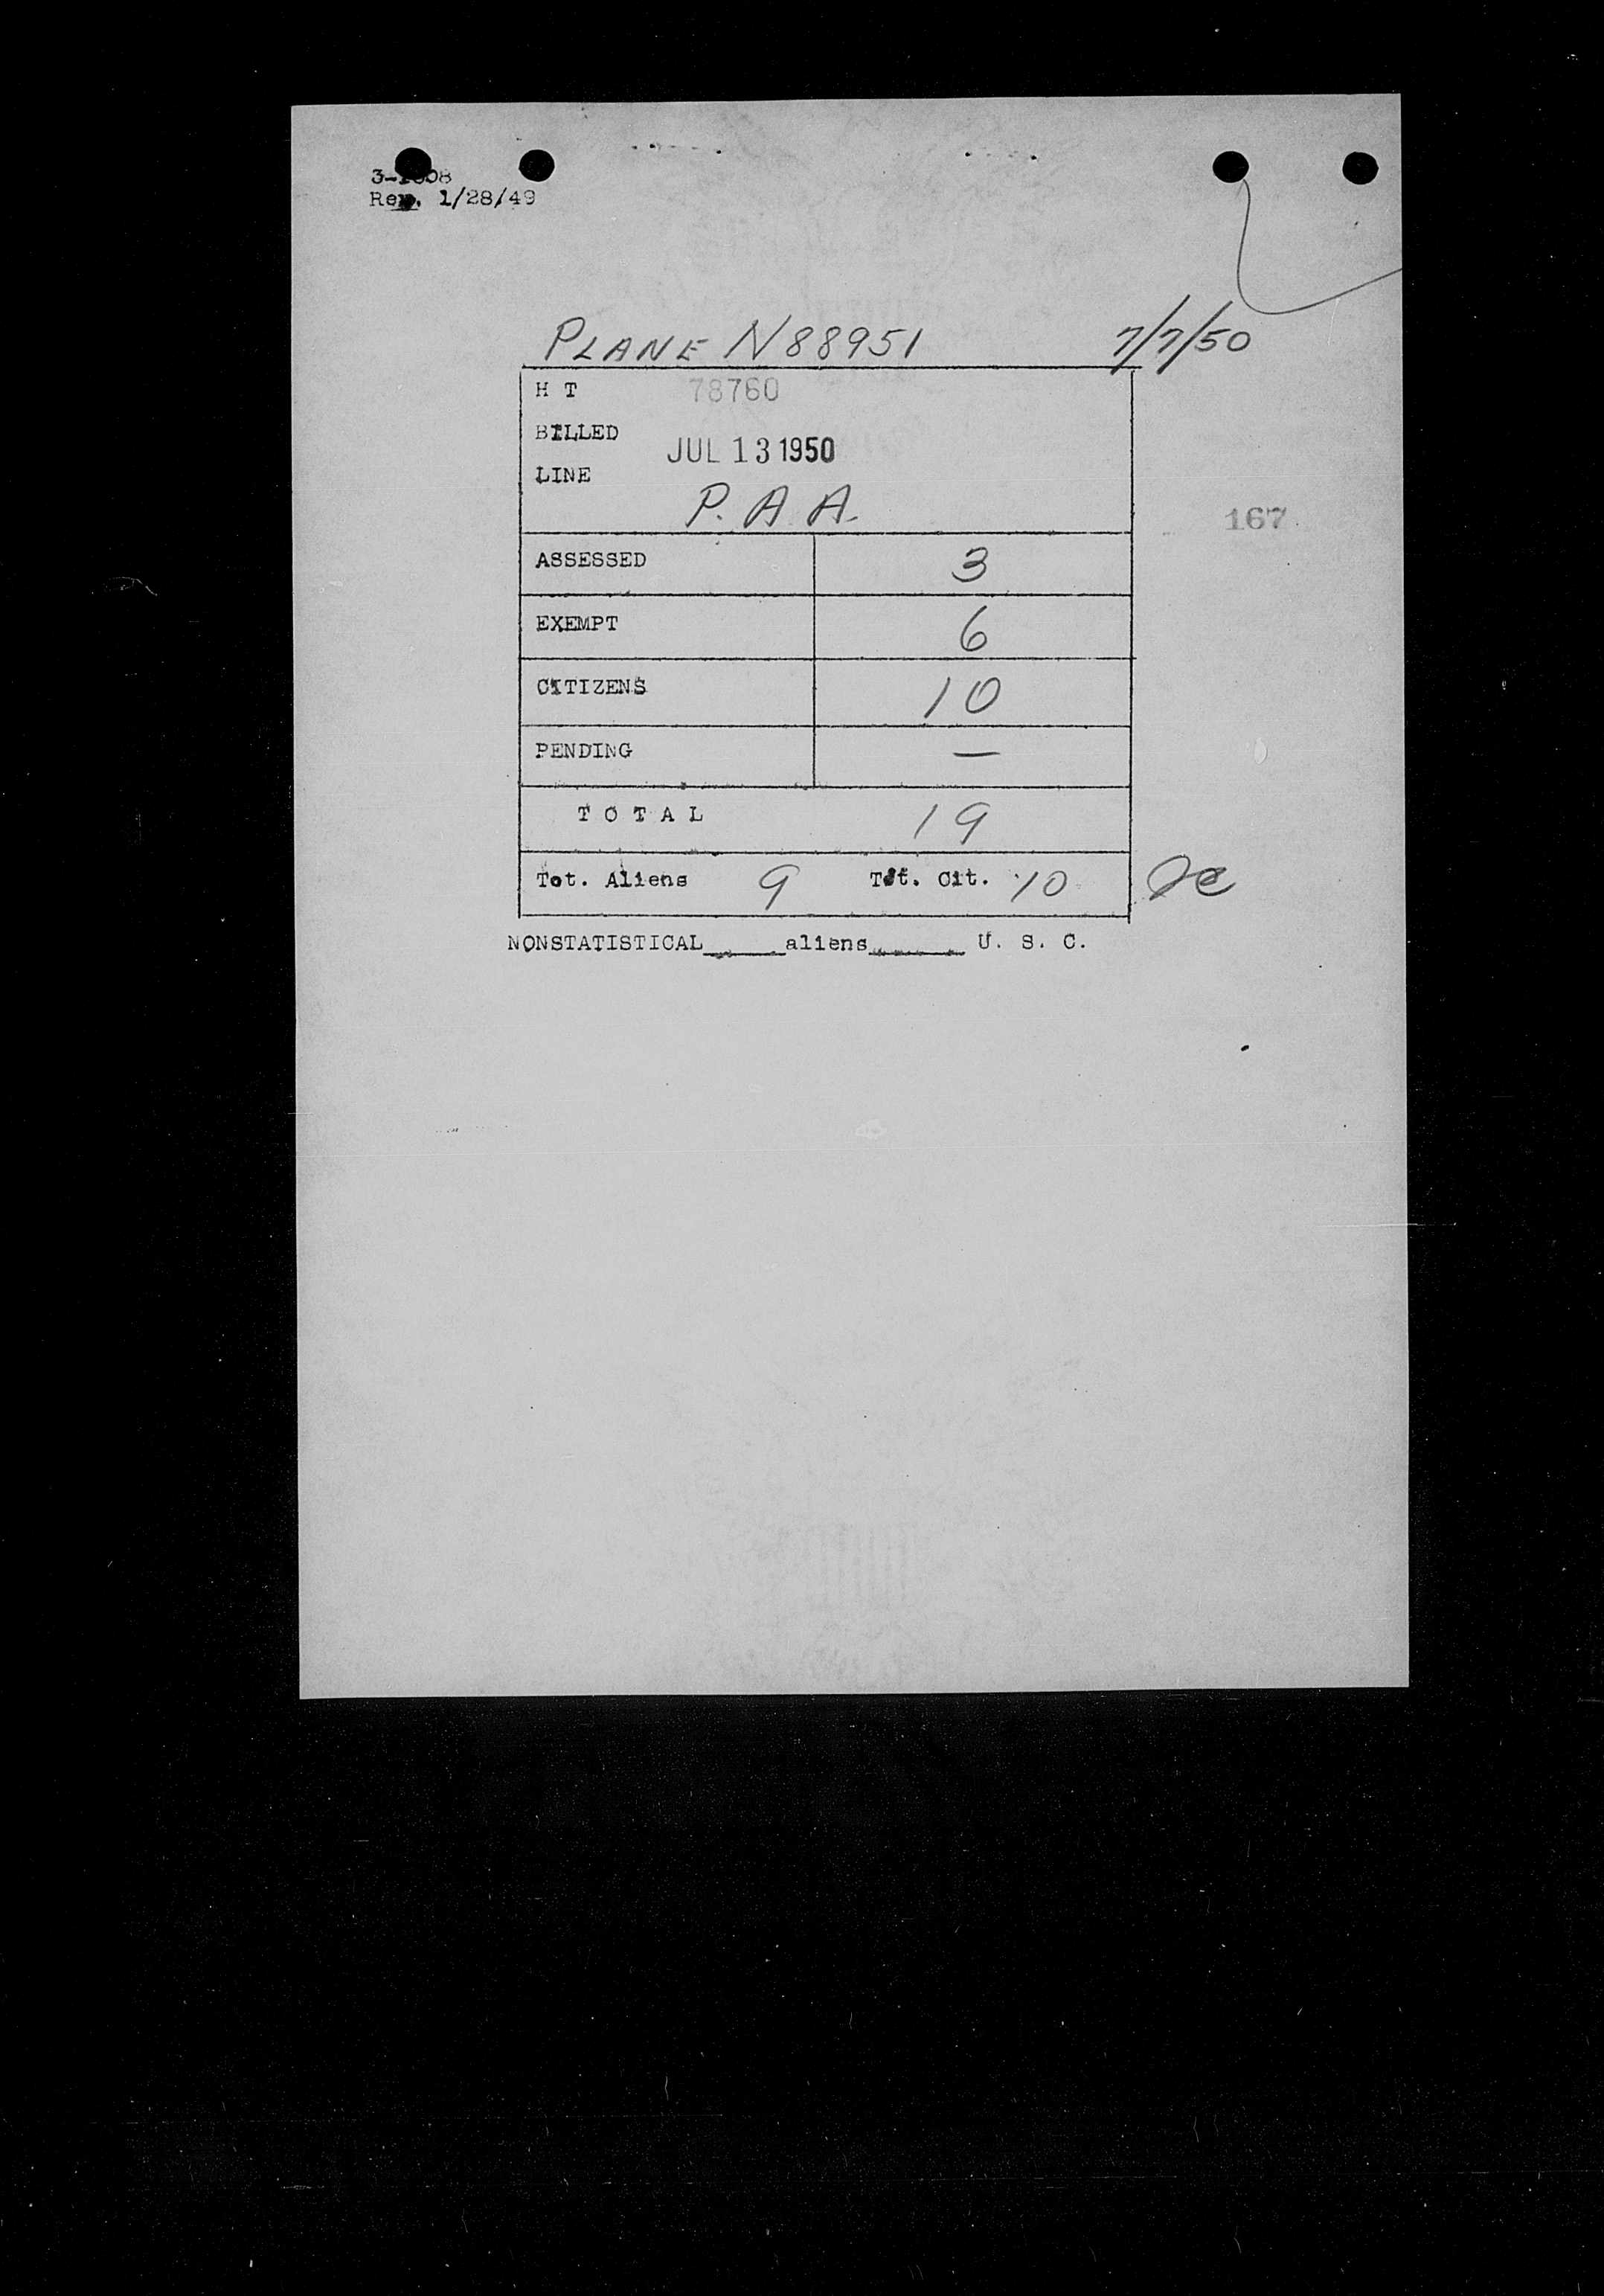 Rev. 1/28/49
PLANE N88951 7/7/50
H T 78760
BILLED JUL 13 1950
LINE
P. A A.
167
ASSESSED 3
EXEMPT 6
CITIZENS 10
PENDING —
T O T A L 19
Tot. Aliens 9 Tot. Cit. 10
NONSTATISTICAL_____aliens______ U. S. C.